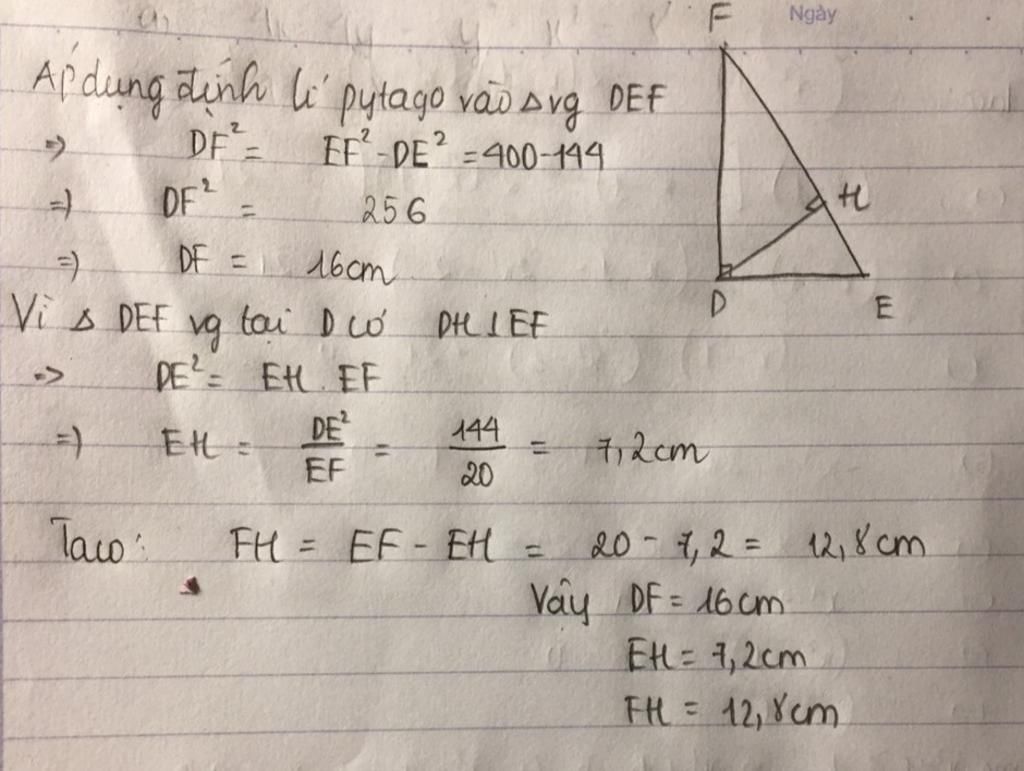 Ngày
F
Áp dụng định lí pytago vào Δvg DEF
=> DF² = EF² - DE² = 400 - 144
=> DF² = 256
H
=> DF = 16cm
D E
Vì Δ DEF vg tại D có DH ⊥ EF
=> DE² = EH . EF
=> EH = DE²/EF = 144/20 = 7,2cm
Ta có: FH = EF - EH = 20 - 7,2 = 12,8cm
Vậy DF = 16cm
EH = 7,2cm
FH = 12,8cm